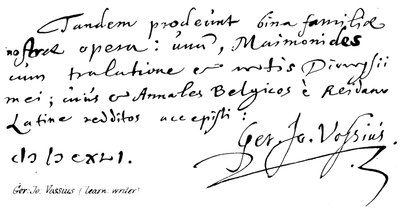 Tandem prodeunt bina familiæ
nostræ opera: unū, Maimonides
cum tralatione et notis Dionysii
mei; cuius et Annales Belgicos è Reidano
Latine redditos accepisti:
Ger. Jo. Vossius.
Ger. Jo. Vossius (learn. writer)